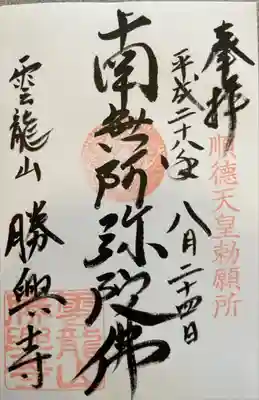 奉拝
順徳天皇勅願所
平成二十八年 八月二十四日
南無阿弥陀佛
雲龍山 勝興寺
雲龍山
勝興寺